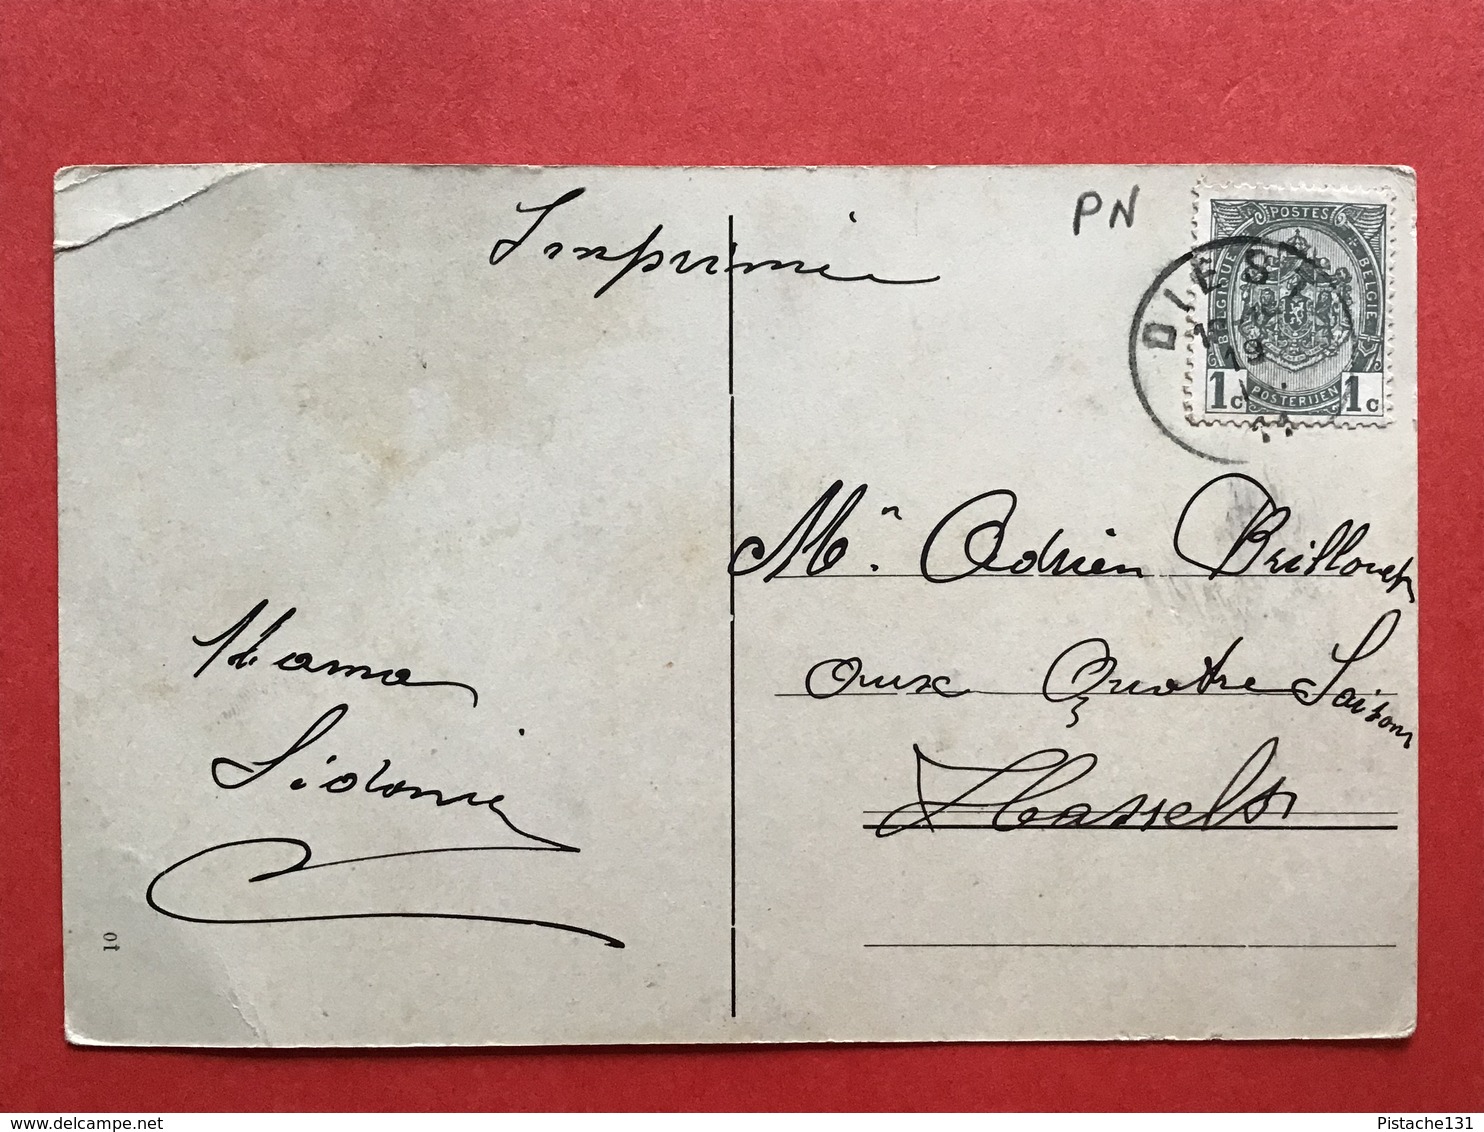 Imprimé
PN
POSTES
BELGIQUE
BELGIE
1c
1c
POSTERIJEN
DIEST
19
Mr. Adrien Brillouet
aux Quatre Saisons
Hasselt
Mama
Sidonie
10
delcampe.net
Pistache131